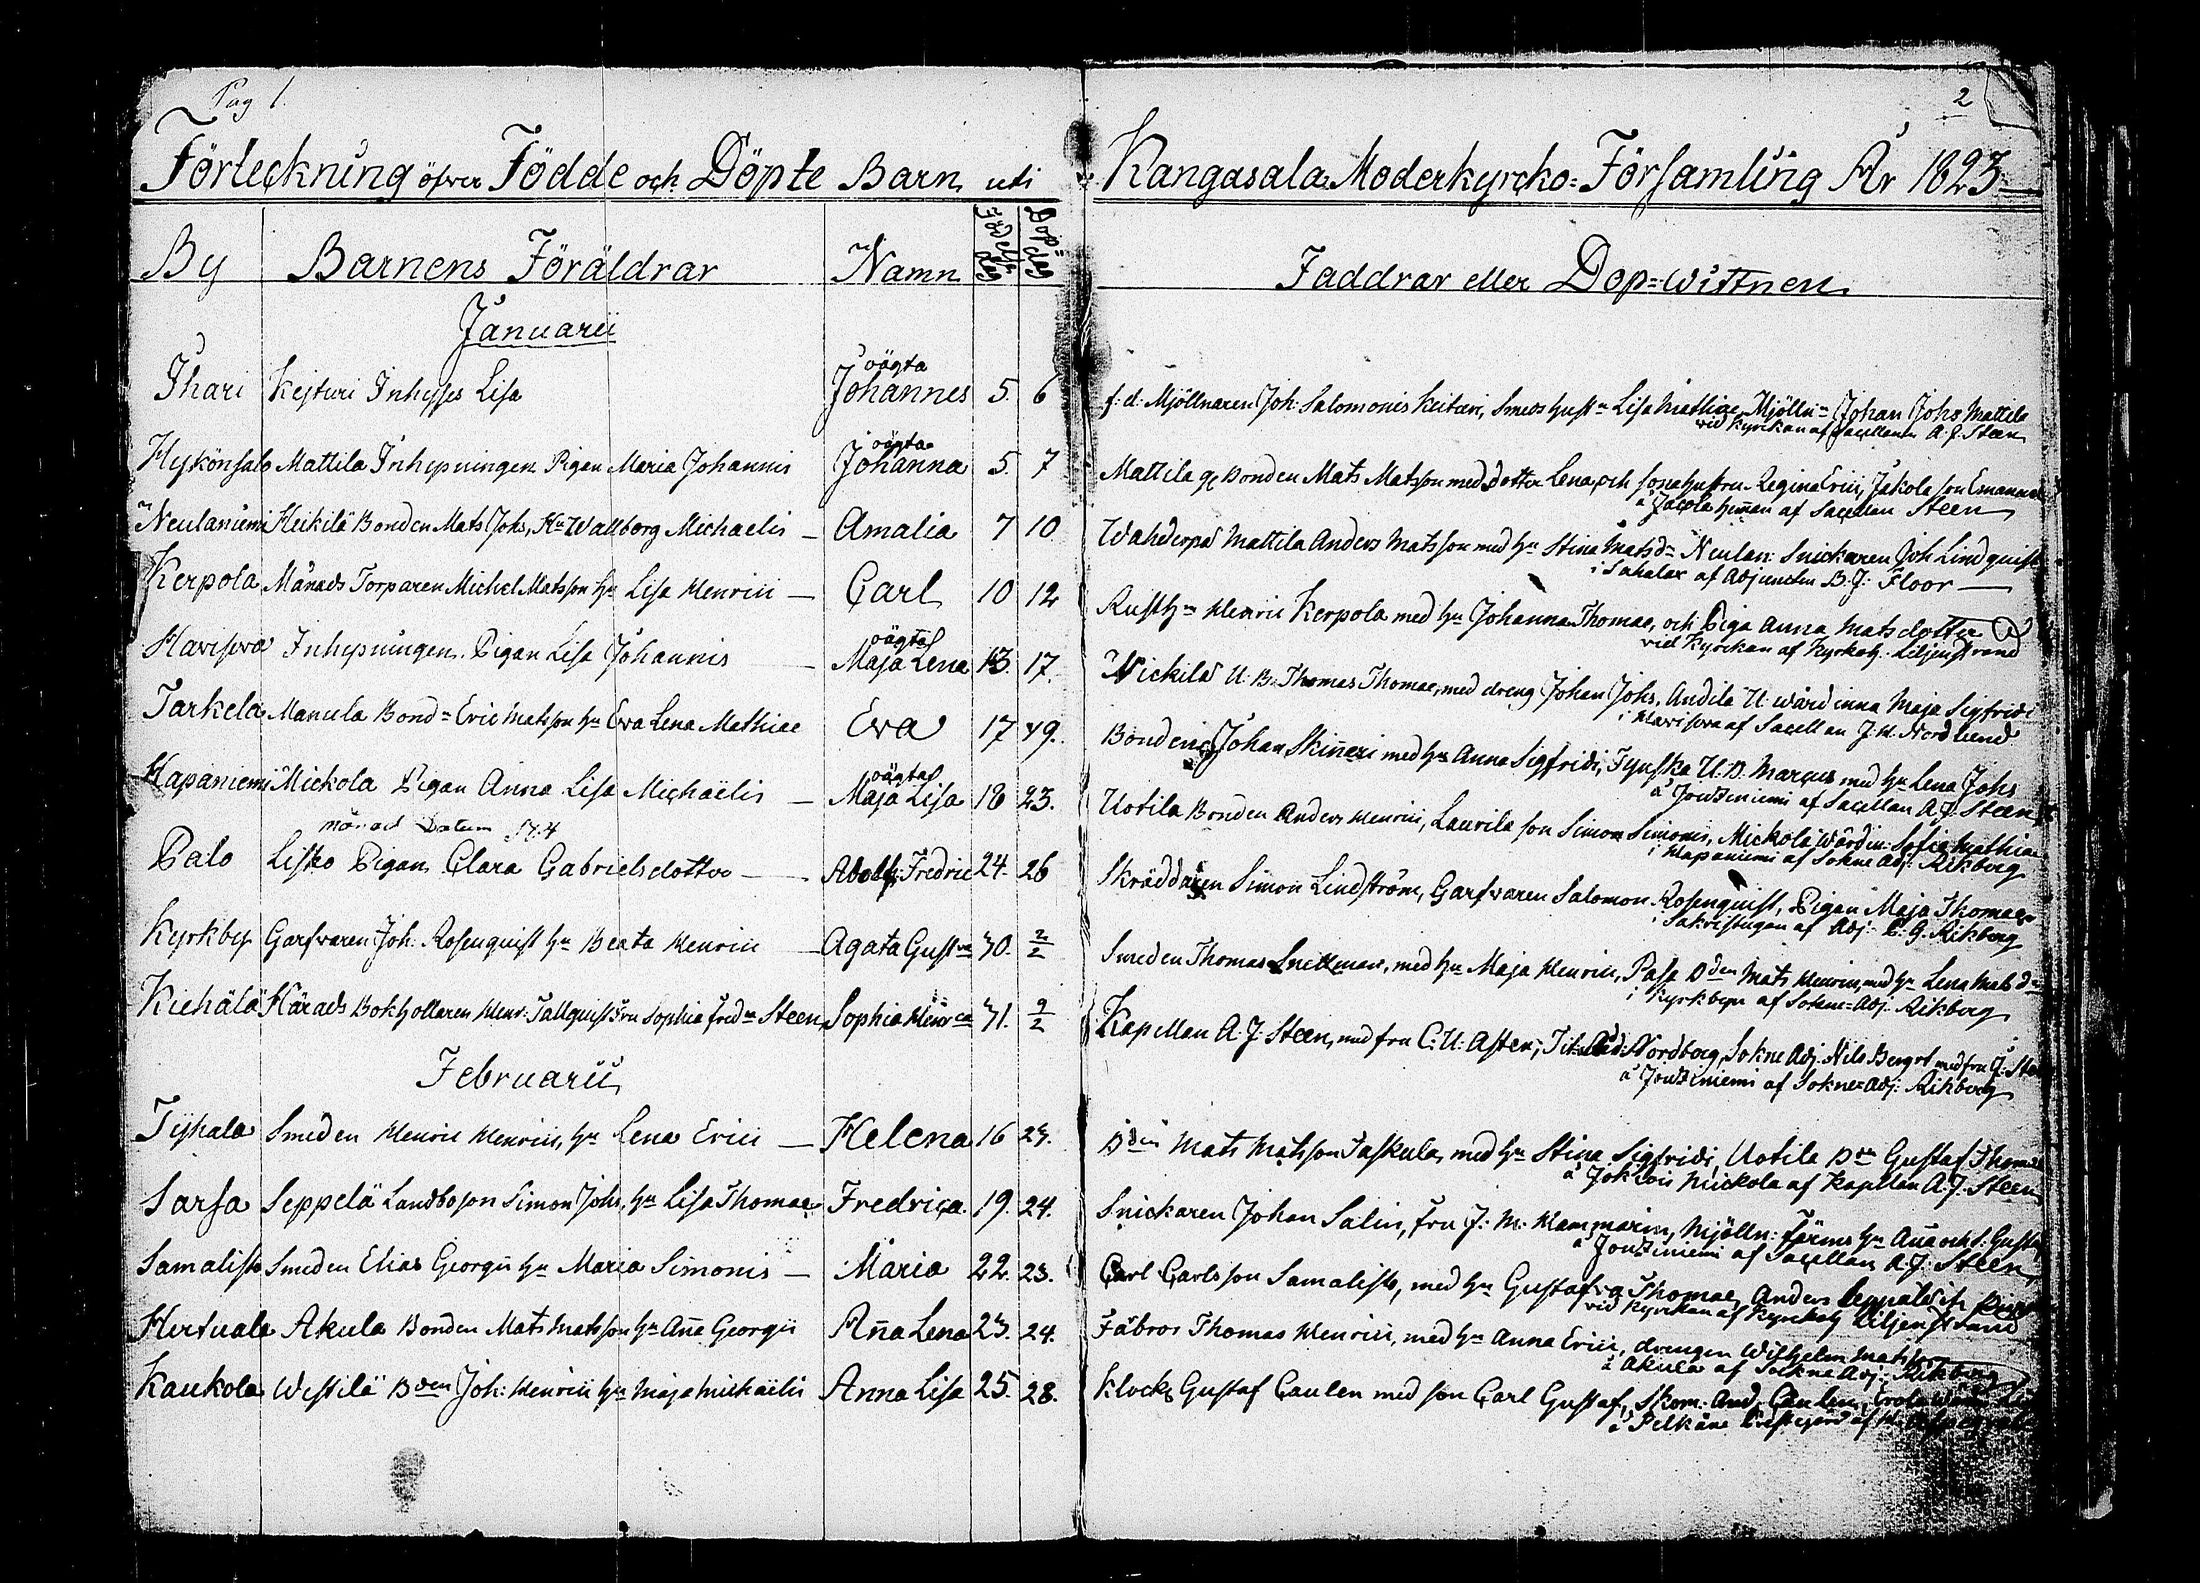 Pag 1.
2
Förteckning öfver Födde och Döpte Barn uti Kangasala Moderkyrcko-Församling År 1823
By Barnens Föräldrar Namn Födelse dag Dop-dag Faddrar eller Dop-Wittnen
Januarii
oägta
Ihari Kejturi Inhyses Lisa Johannes 5. 6 f: d: Mjöllnaren Joh: Salomonis Keituri, Smeds hust. Lisa Mathiae, Mjölln: Johan Johs Mattila
vid Kyrkan af Sacellanen A. J. Steen
oägta
Hykönsalo Mattila Inhysningen Pigan Maria Johannis Johanna 5. 7 Mattila Bonden Mats Matsson med dotter Lena, och sonahustru Regina Erici, Jakola son Emanuel
å Jacola heman af Sacellan Steen
Neulaniemi Heikilä Bonden Mats Johs, Hu Wallborg Michaelis – Amalia 7 10 Wahderpä Mattila Anders Matsson med hu Stina Mats dr Neulan: Snickaren Joh Lindquist
i Sahalax af Adjuncten B. J: Floor
Kerpola Månads Torparen Michel Matsson hu Lisa Henrici – Carl 10 12 Rusth: Henric Kerpola med hu Johanna Thomae, och Piga Anna Matsdotter
vid Kyrckan af Kyrkoh. Liljenstrand
oägta
Haviseva Inhysningen Pigan Lisa Johannis – Maja Lena 13. 17. Nickilä U: B: Thomas Thomae, med dreng Johan Johs, Andila U: wärdinna Maja Sigfridi
i Haviseva af Sacellan J. H. Nordlund
Tarkela Manula Bond: Eric Matsson hu Eva Lena Mathiae Eva 17 19. Bonden Johan Skinnari med hu Anna Sigfridi, Tynska U: B. Marcus med hu Lena Johs
å Jouteniemi af Sacellan A. J. Steen
oägta
Hapaniemi Mickola Pigan Anna Lisa Michaëlis – Maja Lisa 18 23. Uotila Bonden Anders Henrici, Laurila son Simon Simonis, Mickola Wärdin: Sofia Mathiae
i Hapaniemi af Sokne Adj: Rikberg
månad Datum
Palo Lisko Pigan Clara Gabrielsdotter – Adolf Fredric 24. 26 Skräddaren Simon Lindström, Garfvaren Salomon Rosenquist, Pigan Maja Thomae
i Sakristugan af Adj: C. G. Rikberg
Kyrkby Garfvaren Joh: Rosenquist hu Beata Henrici – Agata Gustva 30. 2/2 Smeden Thomas Snellman, med hu Maja Henrici, Pasa Bden Mats Henrici, med hu Lena Mats dr
i Kyrkbyn af Sokne-Adj: Rikberg
Kiehälä Härads Bokhollaren Henr: Tallquist Fru Sophia Fredca Steen Sophia Henrca 31. 9/2 Kapellan A. J. Steen, med fru C: U: Asten, Nordborg, Sokne Adj: Nils Bergrot med fru J: Steen
å Jouteniemi af Sokne-Adj: Rikberg
Februarii
Tyhala Smeden Henric Henrici, hu Lena Erici – Helena 16 23. Bden Mats Matsson Paskula, med hu Stina Sigfridi, Uotila Bden Gustaf Thomae
å Jokiois Mickola af Kapellan A. J. Steen
Sarsa Seppelä Landbo son Simon Johs, hu Lisa Thomae Fredrica 19. 24. Snickaren Johan Salin, fru J: M: Hammarin, Mjölln: Färms hu Aña och S: Gustaf
å Jouteniemi af Sacellan A. J. Steen
Samalisto Smeden Elias Georgii hu Maria Simonis – Maria 22. 23. Carl Carlsson Samalisto, med hu Gustafva Thomae, Anders
vid Kyrkan af Kyrkoh. Liljenstrand
Hertuala Akula Bonden Mats Matsson hu Aña Georgii Aña Lena 23. 24. Fäbror Thomas Henrici, med hu Anna Erici, drengen Wilhelm Matsson
i Akula af Sokne Adj: Rikberg
Kaukola Westilä Bden Joh: Henrici hu Maja Michaëlis Anna Lisa 25. 28. Klock: Gustaf Caulen med son Carl Gustaf, Skom: And: Caulen, Erola
i Pelkäne Prestegård af